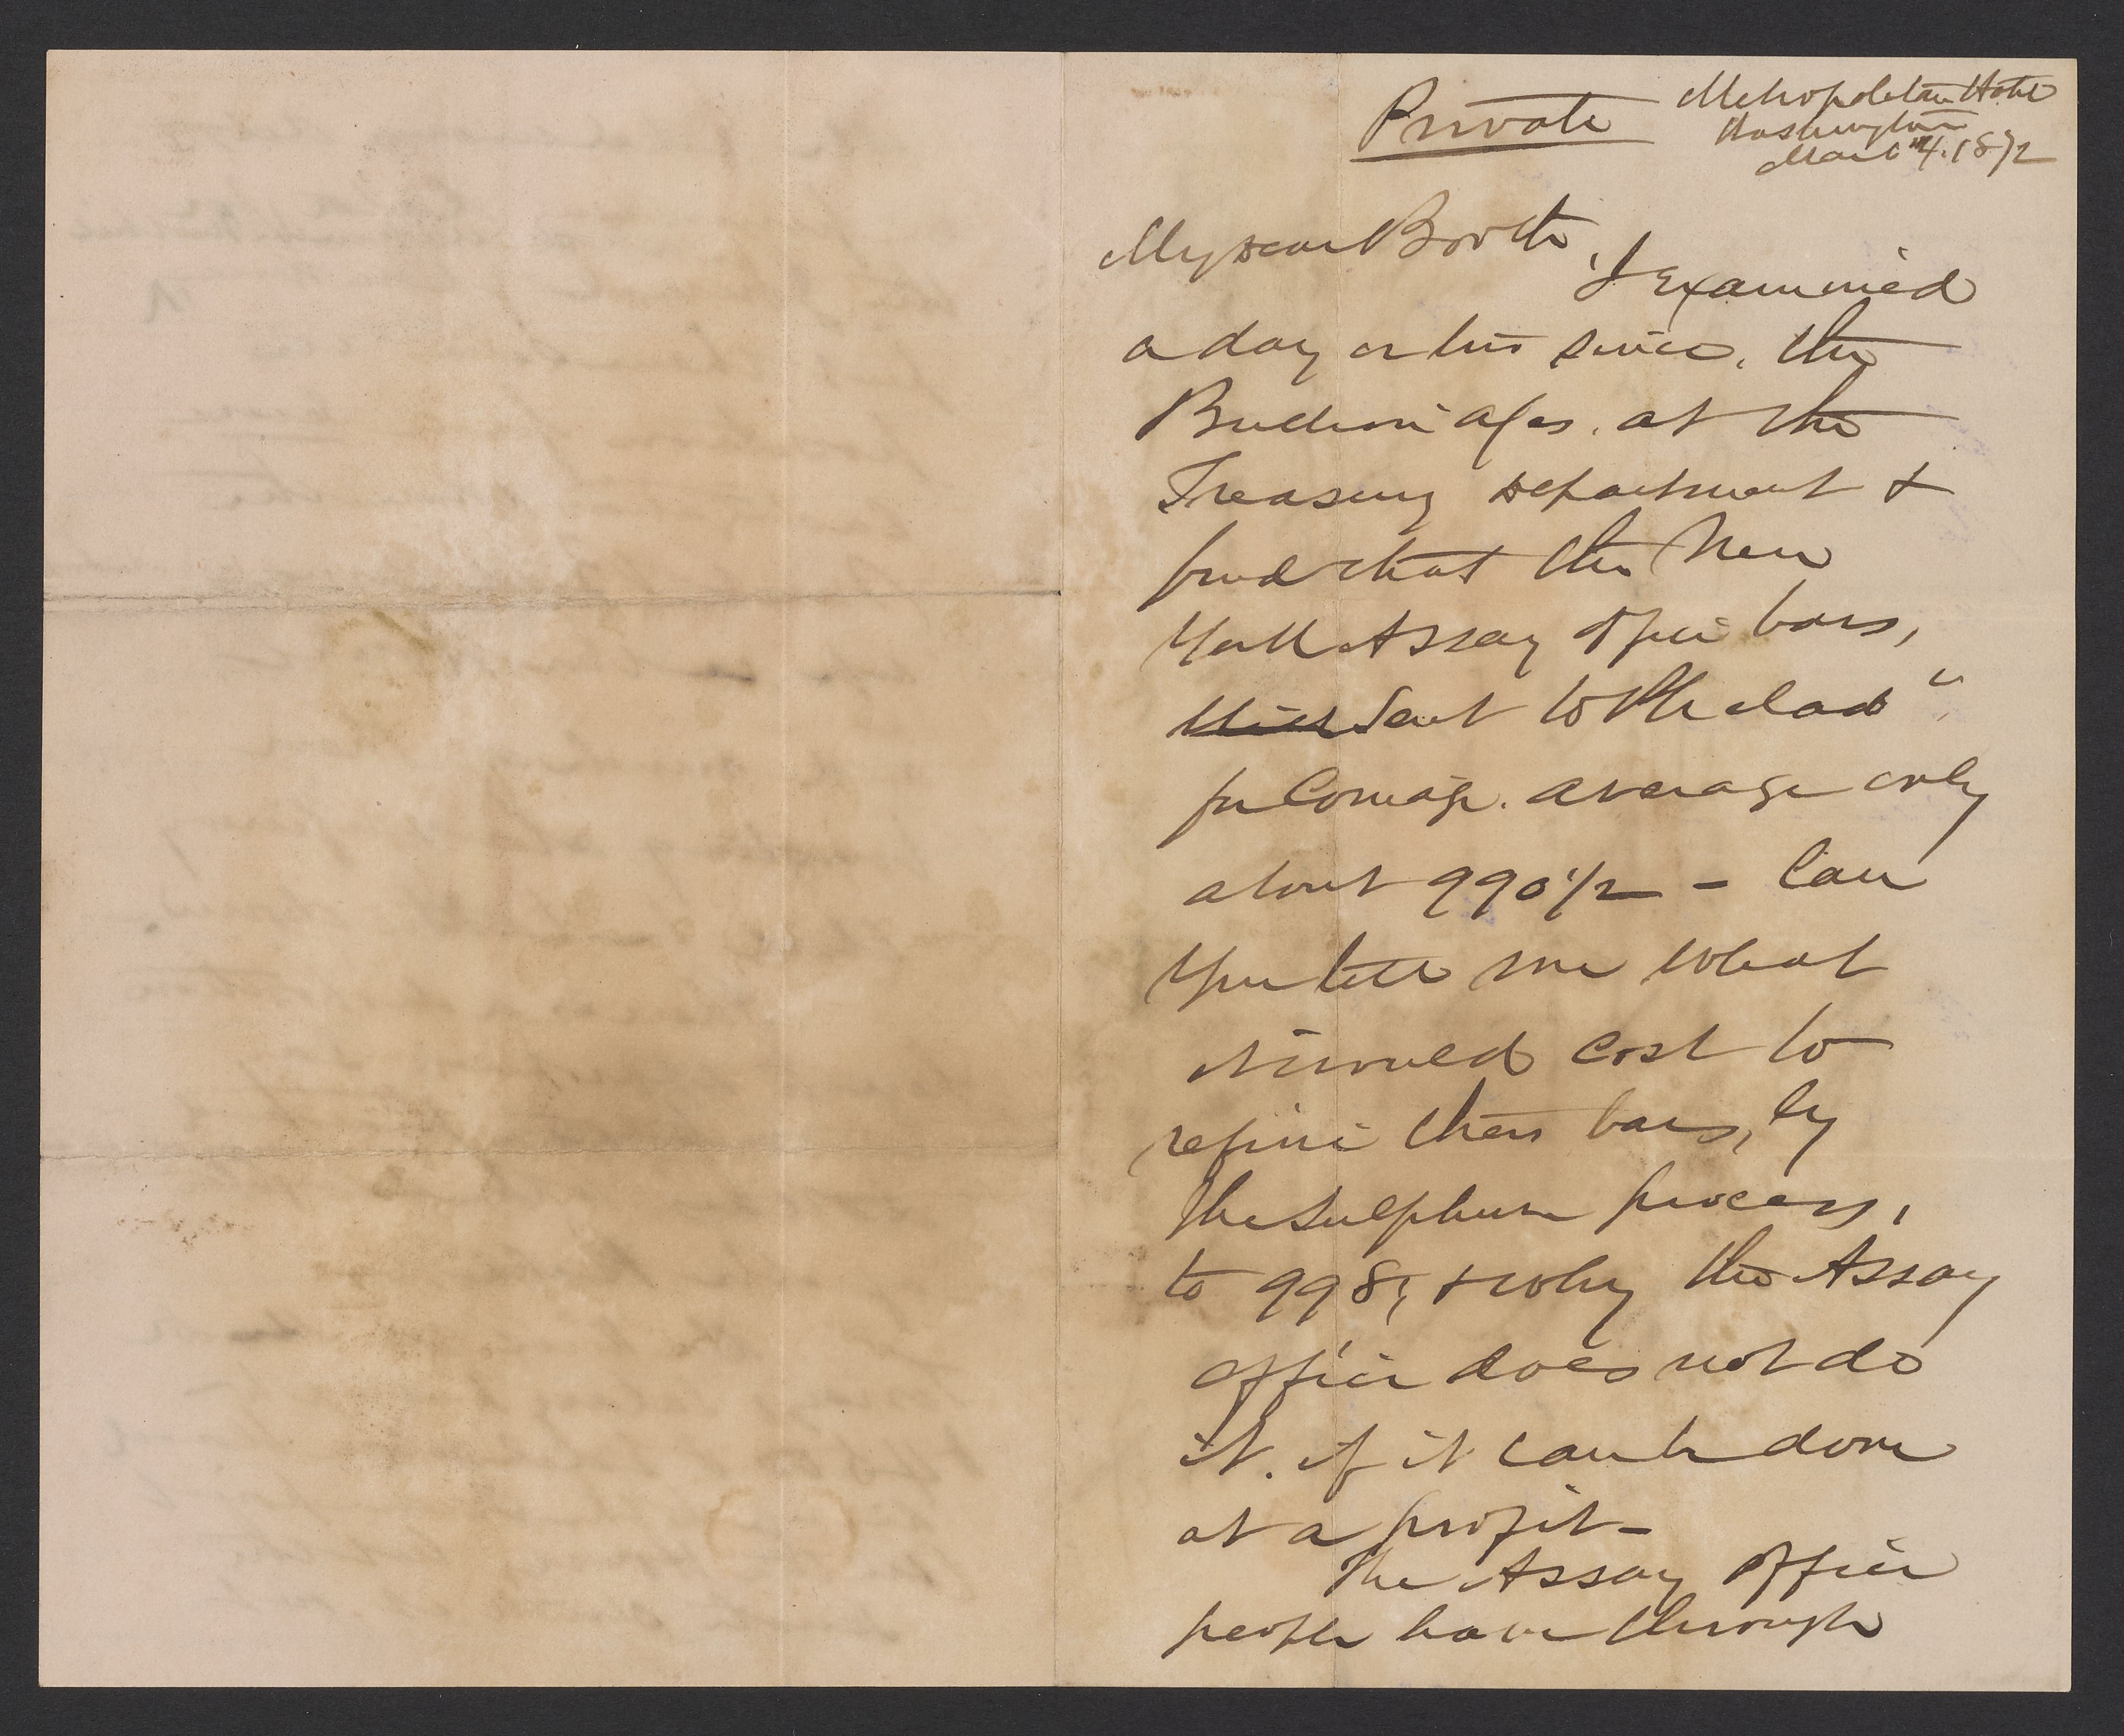 Private
Metropolitan Hotel
Washington
March 4. 1872
My dear Booth,
I Examined
a day or two since, the
Bullion a/cs. at the
Treasury Department &
find that the New
York Assay Office bars,
Sent to Philada
for Coinage. average only
about 990 1/2 - Can
you tell me what
it would cost to
refine these bars, by
the Sulphur process,
to 998, & why the Assay
office does not do
it. if it can be done
at a profit -
The Assay Office
people have through